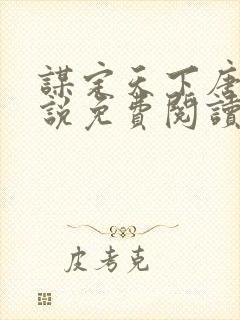 謀定天下唐
說免費閱讀
皮考克